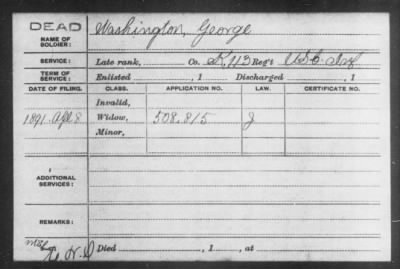 DEAD
NAME OF SOLDIER: Washington, George
SERVICE: Late rank, Co. K, 113 Reg't U.S.C. Inf
TERM OF SERVICE: Enlisted , 1 Discharged , 1
DATE OF FILING. CLASS. APPLICATION NO. LAW. CERTIFICATE NO.
Invalid,
1891. Apl 8 Widow, 508.815 J
Minor,
ADDITIONAL SERVICES:
REMARKS:
Died , 1 , at